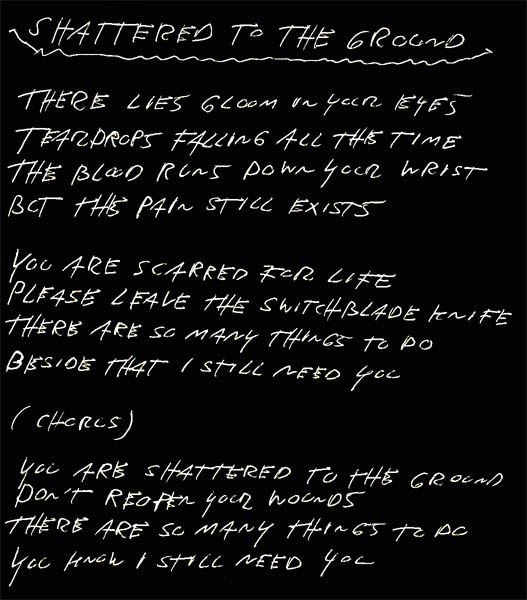 SHATTERED TO THE GROUND
THERE LIES GLOOM IN YOUR EYES
TEARDROPS FALLING ALL THE TIME
THE BLOOD RUNS DOWN YOUR WRIST
BUT THE PAIN STILL EXISTS
YOU ARE SCARRED FOR LIFE
PLEASE LEAVE THE SWITCHBLADE KNIFE
THERE ARE SO MANY THINGS TO DO
BESIDE THAT I STILL NEED YOU
(CHORUS)
YOU ARE SHATTERED TO THE GROUND
DON'T REOPEN YOUR WOUNDS
THERE ARE SO MANY THINGS TO DO
YOU KNOW I STILL NEED YOU